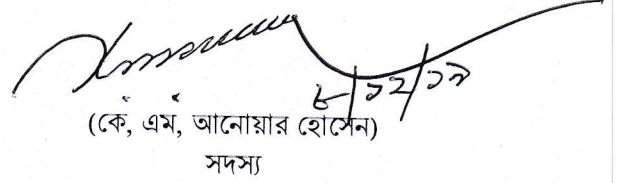 ৮/১২/১৯
(কে, এম, আনোয়ার হোসেন)
সদস্য